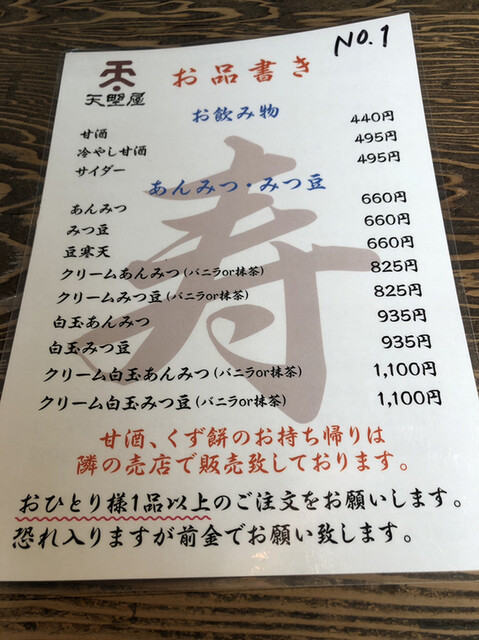 No.1
天
天野屋
お品書き
お飲み物
甘酒 440円
冷やし甘酒 495円
サイダー 495円
あんみつ・みつ豆
あんみつ 660円
みつ豆 660円
豆寒天 660円
クリームあんみつ(バニラor抹茶) 825円
クリームみつ豆(バニラor抹茶) 825円
白玉あんみつ 935円
白玉みつ豆 935円
クリーム白玉あんみつ(バニラor抹茶) 1,100円
クリーム白玉みつ豆(バニラor抹茶) 1,100円
寿
甘酒、くず餅のお持ち帰りは
隣の売店で販売致しております。
おひとり様1品以上のご注文をお願いします。
恐れ入りますが前金でお願い致します。